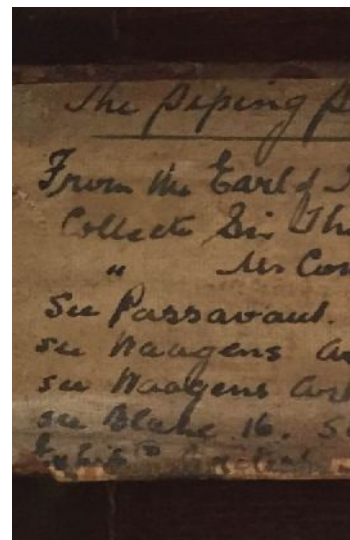 The Piping
From the Earl of
Collectn Sir Tho
" Mr Con
See Passavant.
see Waagens
see Waagens
see Blake 16.